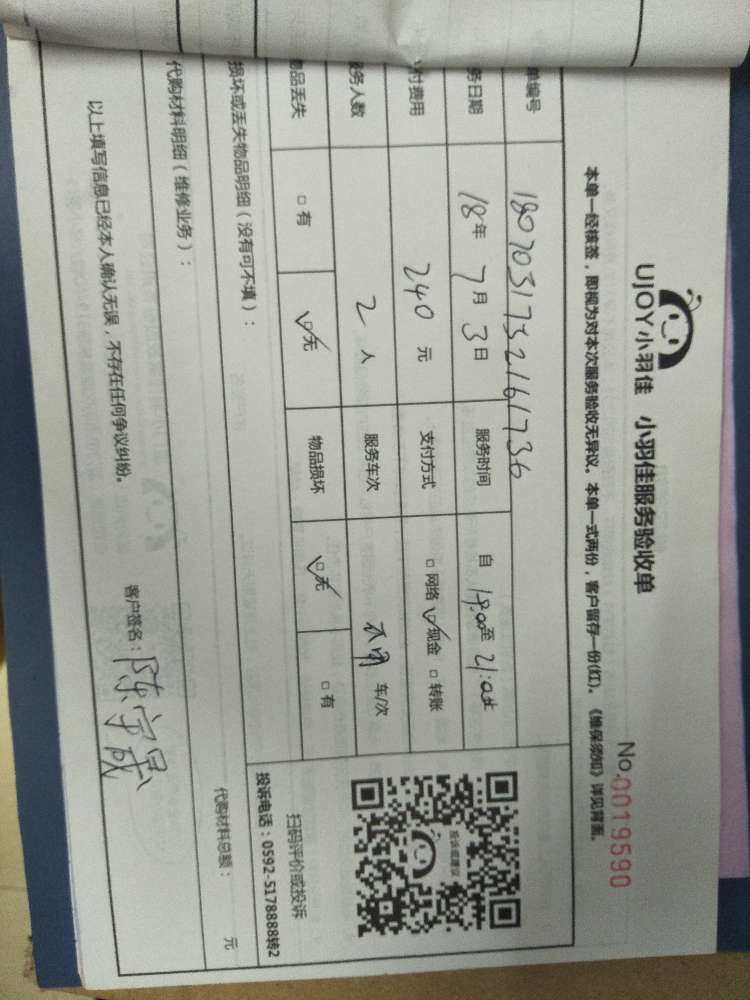 UJOY小羽佳 小羽佳服务验收单
No.0019590
本单一经核签，即视为对本次服务验收无异议。本单一式两份，客户留存一份(红)。《维保须知》详见背面。
单编号 1807031732161736
务日期 18年7月3日 服务时间 自 19:00至21:00止
付费用 240元 支付方式 □网络 ☑现金 □转账
务人数 2人 服务车次 车/次
品丢失 □有 ☑无 物品损坏 ☑无 □有
投诉或建议
扫码评价或投诉
投诉电话：0592-5178888转2
损坏或丢失物品明细（没有可不填）：
代购材料明细（维修业务）：
代购材料总额： 元
以上填写信息已经本人确认无误，不存在任何争议纠纷。
客户签名：陈宇晟